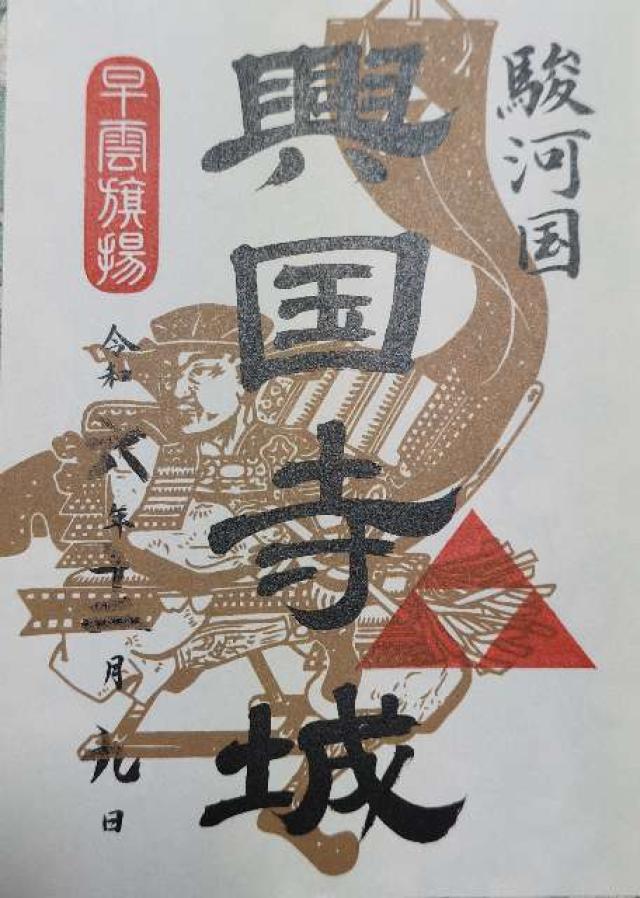 駿河国
興国寺城
早雲旗揚
令和六年十二月九日